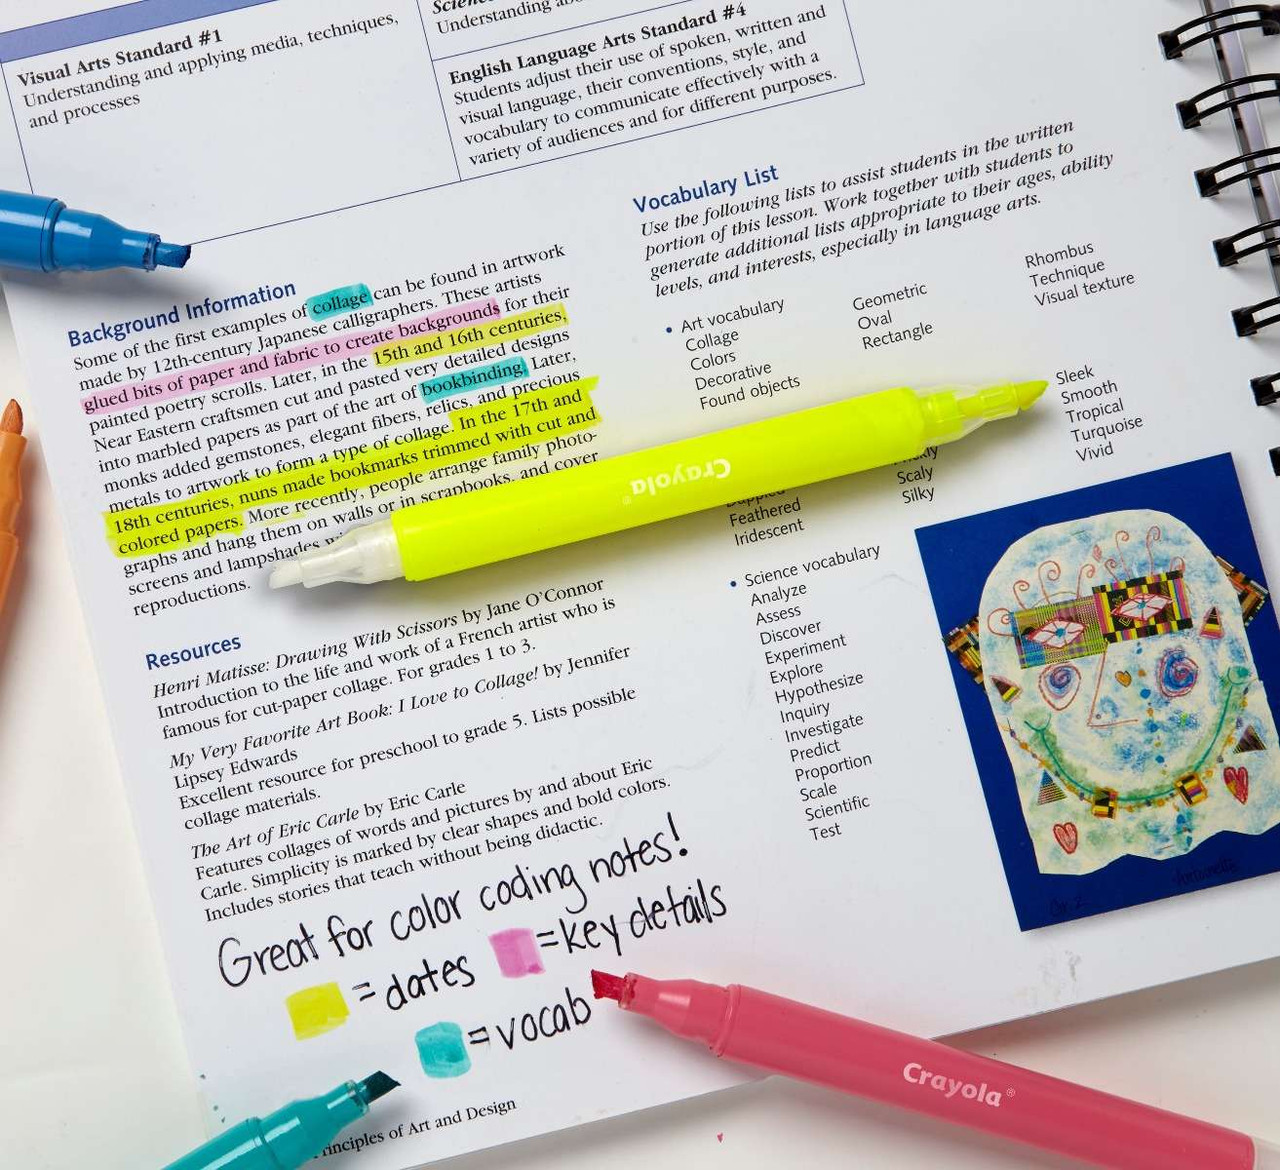 Visual Arts Standard #1
Understanding and applying media, techniques,
and processes
Understanding
English Language Arts Standard #4
Students adjust their use of spoken, written and
visual language, their conventions, style, and
vocabulary to communicate effectively with a
variety of audiences and for different purposes.
Background Information
Some of the first examples of collage can be found in artwork
made by 12th-century Japanese calligraphers. These artists
glued bits of paper and fabric to create backgrounds for their
painted poetry scrolls. Later, in the 15th and 16th centuries,
Near Eastern craftsmen cut and pasted very detailed designs
into marbled papers as part of the art of bookbinding. Later,
monks added gemstones, elegant fibers, relics, and precious
metals to artwork to form a type of collage. In the 17th and
18th centuries, nuns made bookmarks trimmed with cut and
colored papers. More recently, people arrange family photo-
graphs and hang them on walls or in scrapbooks, and cover
screens and lampshades
reproductions.
Resources
Henri Matisse: Drawing With Scissors by Jane O'Connor
Introduction to the life and work of a French artist who is
famous for cut-paper collage. For grades 1 to 3.
My Very Favorite Art Book: I Love to Collage! by Jennifer
Lipsey Edwards
Excellent resource for preschool to grade 5. Lists possible
collage materials.
The Art of Eric Carle by Eric Carle
Features collages of words and pictures by and about Eric
Carle. Simplicity is marked by clear shapes and bold colors.
Includes stories that teach without being didactic.
Great for color coding notes!
= dates
= key details
= vocab
Principles of Art and Design
Vocabulary List
Use the following lists to assist students in the written
portion of this lesson. Work together with students to
generate additional lists appropriate to their ages, ability
levels, and interests, especially in language arts.
• Art vocabulary
Collage
Colors
Decorative
Found objects
Geometric
Oval
Rectangle
Rhombus
Technique
Visual texture
Dappled
Feathered
Iridescent
Scaly
Silky
Sleek
Smooth
Tropical
Turquoise
Vivid
• Science vocabulary
Analyze
Assess
Discover
Experiment
Explore
Hypothesize
Inquiry
Investigate
Predict
Proportion
Scale
Scientific
Test
Crayola®
Crayola®